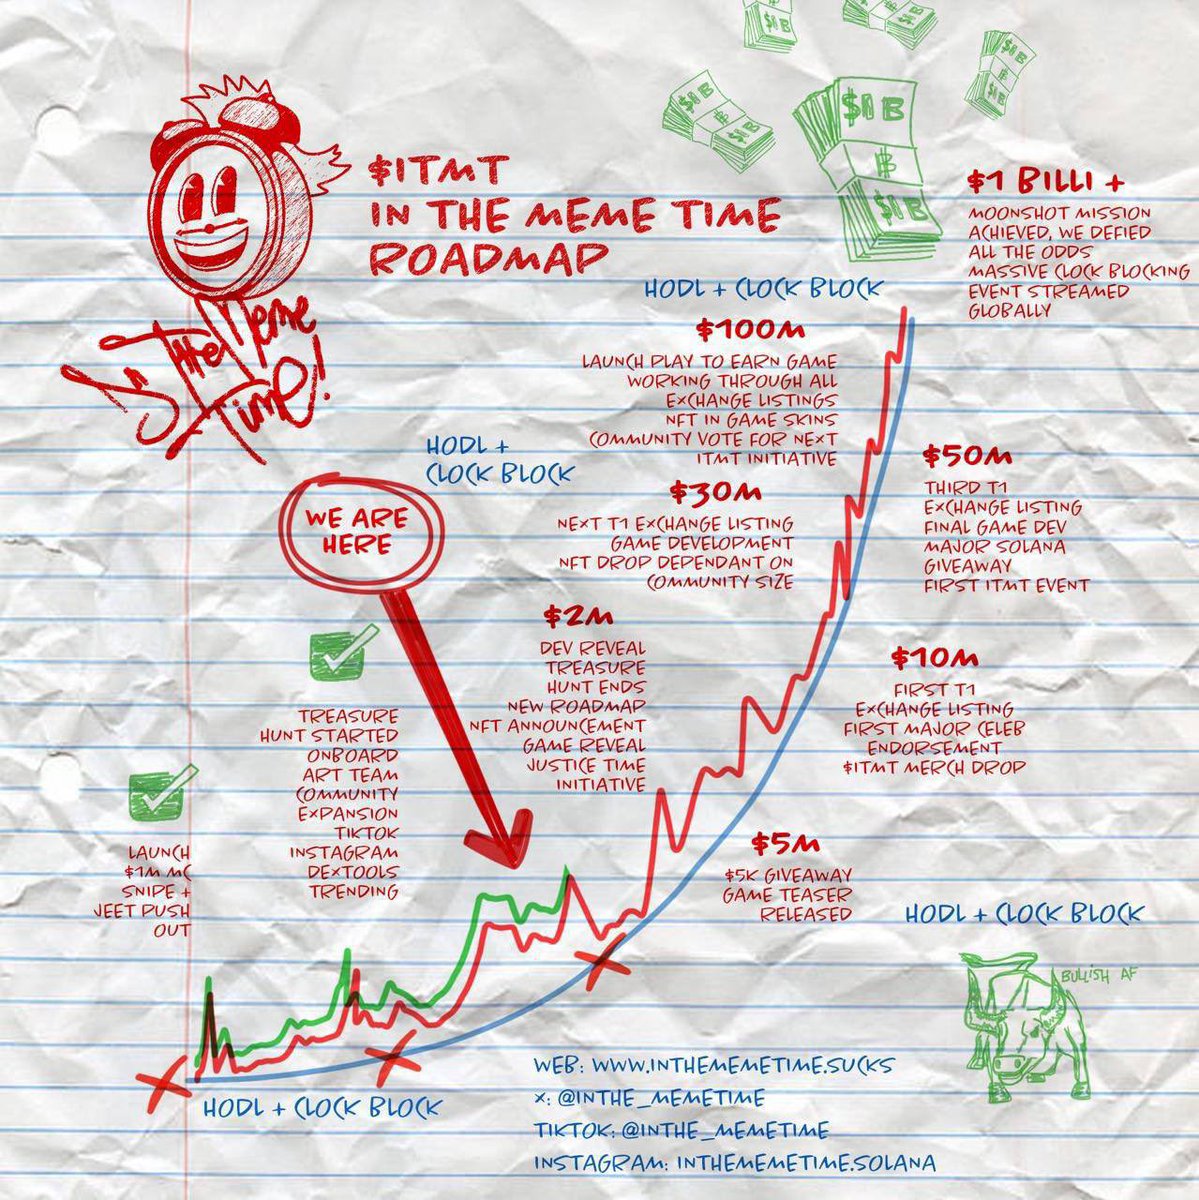 $ITMT
IN THE MEME TIME
ROADMAP
In The Meme
Time!
$1B
$1B
$1B
$1B
$1B
$1 BILLI +
MOONSHOT MISSION
ACHIEVED, WE DEFIED
ALL THE ODDS
MASSIVE CLOCK BLOCKING
EVENT STREAMED
GLOBALLY
HODL + CLOCK BLOCK
$100M
LAUNCH PLAY TO EARN GAME
WORKING THROUGH ALL
EXCHANGE LISTINGS
NFT IN GAME SKINS
COMMUNITY VOTE FOR NEXT
ITMT INITIATIVE
HODL +
CLOCK BLOCK
$50M
THIRD T1
EXCHANGE LISTING
FINAL GAME DEV
MAJOR SOLANA
GIVEAWAY
FIRST ITMT EVENT
$30M
NEXT T1 EXCHANGE LISTING
GAME DEVELOPMENT
NFT DROP DEPENDANT ON
COMMUNITY SIZE
WE ARE
HERE
$2M
DEV REVEAL
TREASURE
HUNT ENDS
NEW ROADMAP
NFT ANNOUNCEMENT
GAME REVEAL
JUSTICE TIME
INITIATIVE
$10M
FIRST T1
EXCHANGE LISTING
FIRST MAJOR CELEB
ENDORSEMENT
$ITMT MERCH DROP
TREASURE
HUNT STARTED
ONBOARD
ART TEAM
COMMUNITY
EXPANSION
TIKTOK
INSTAGRAM
DEXTOOLS
TRENDING
LAUNCH
$1M MC
SNIPE +
JEET PUSH
OUT
$5M
$5K GIVEAWAY
GAME TEASER
RELEASED
HODL + CLOCK BLOCK
BULLISH AF
HODL + CLOCK BLOCK
WEB: WWW.INTHEMEMETIME.SUCKS
X: @INTHE_MEMETIME
TIKTOK: @INTHE_MEMETIME
INSTAGRAM: INTHEMEMETIME.SOLANA